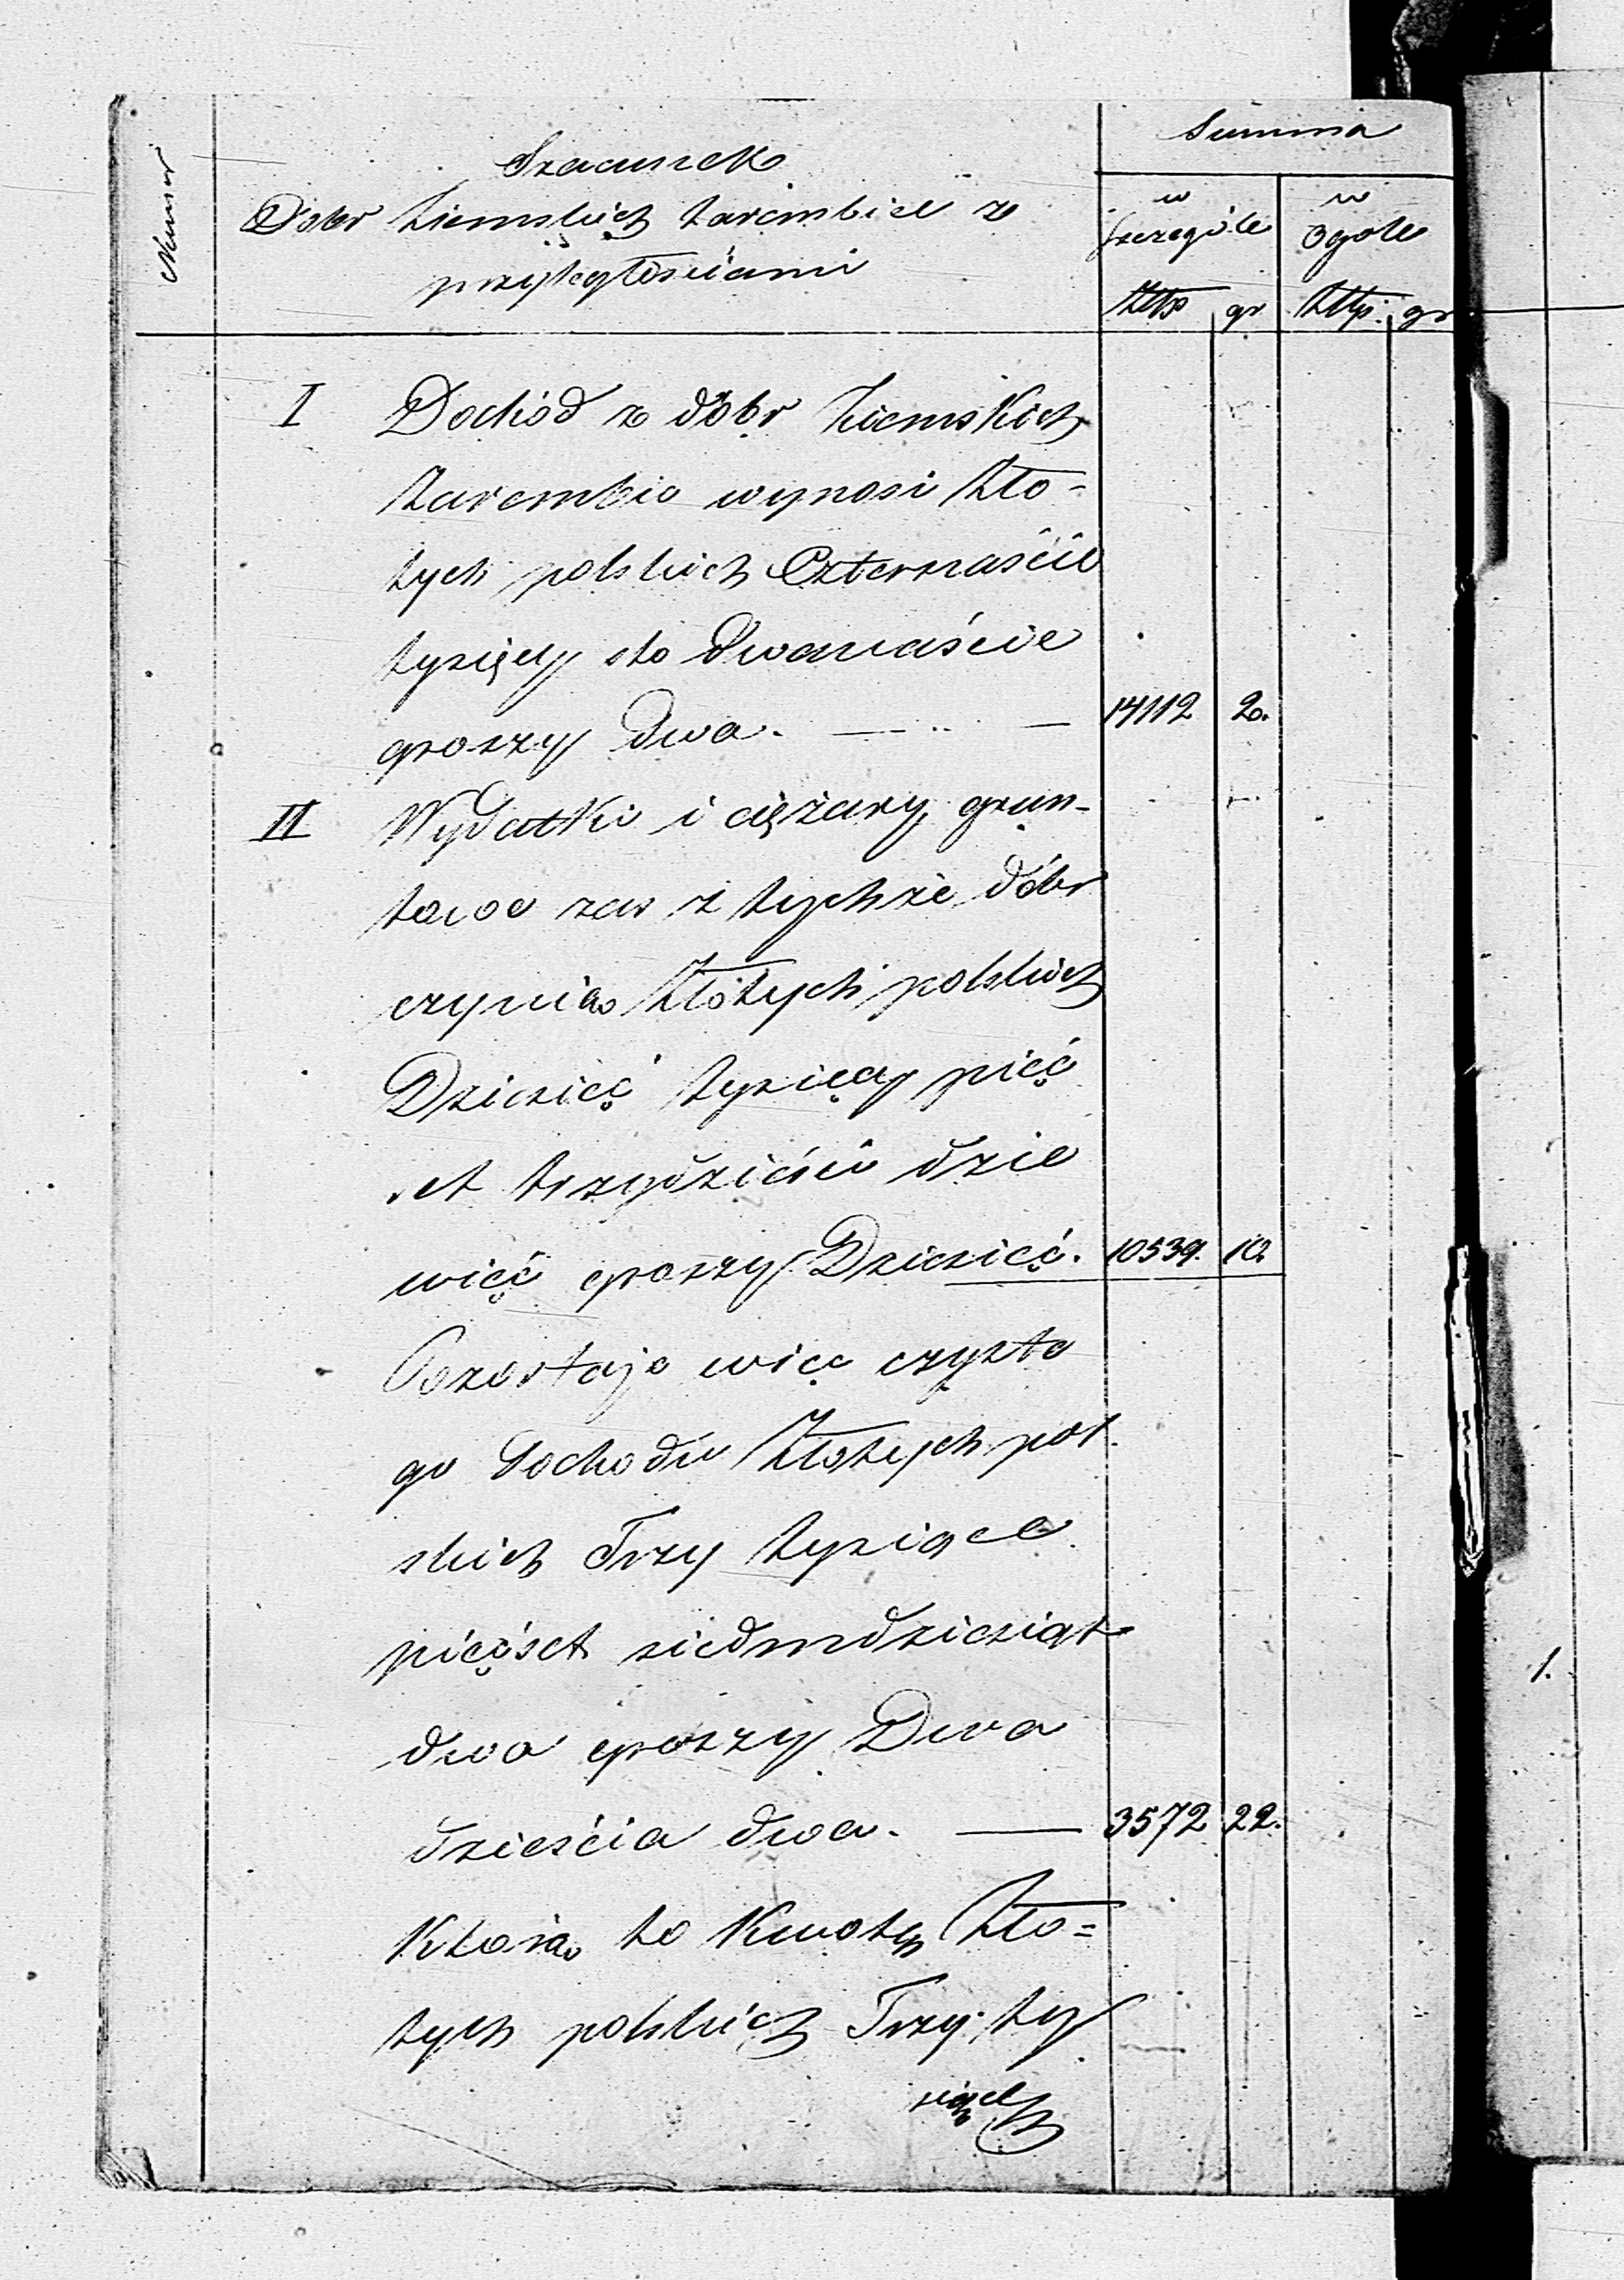 Numer
Szacunek
Dobr Ziemskich Zarembice z
przyległościami
Summa
w
szczególe
w
ogóle
Złtp gr Złtp: gr
I Dochód z dóbr Ziemskich
Zarembic wynosi Zło-
tych polskich Czternaście
tysięcy sto Dwanaście
groszy Dwa. 14112 2.
II Wydatki i ciężary grun-
towe zaś z tychże dóbr
czynią Złotych polskich
Dziesięć tysięcy pięć
set trzydzieści dzie
więć groszy Dziesięć. 10539. 10
Pozostaje więc czyste
go dochodu Złotych pol
skich Trzy tysiące
pięćset siedmdziesiąt
dwa groszy Dwa
dzieścia dwa. 3572 22.
Którą to Kwotę Zło=
tych polskich Trzy ty
siące
1.